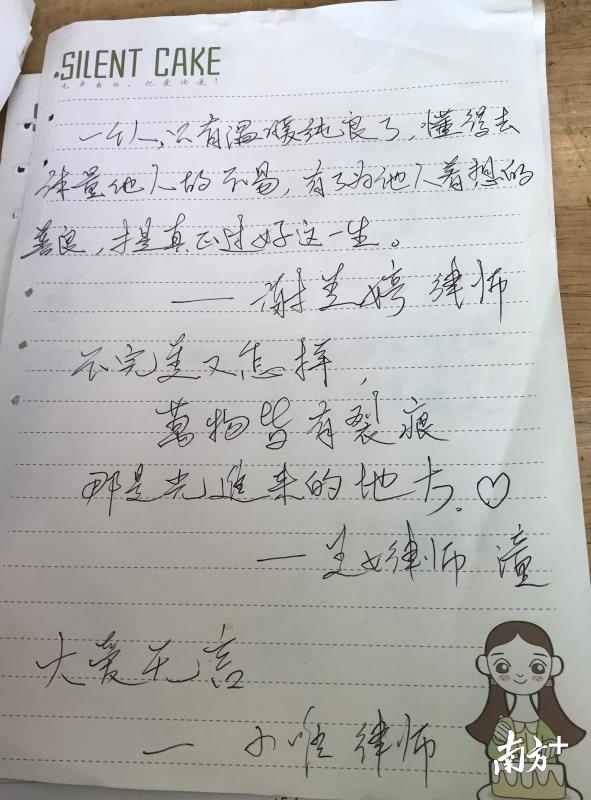 SILENT CAKE
无声告白，把爱传递！
一个人，只有温暖纯良了，懂得去
体量他人的不易，有了为他人着想的
善良，才是真正过好这一生。
—— 谢兰婷 律师
不完美又怎样，
萬物皆有裂痕
那是光進来的地方。♡
— 美女律师 潼
大爱无言
— 小唯 律师
南方+